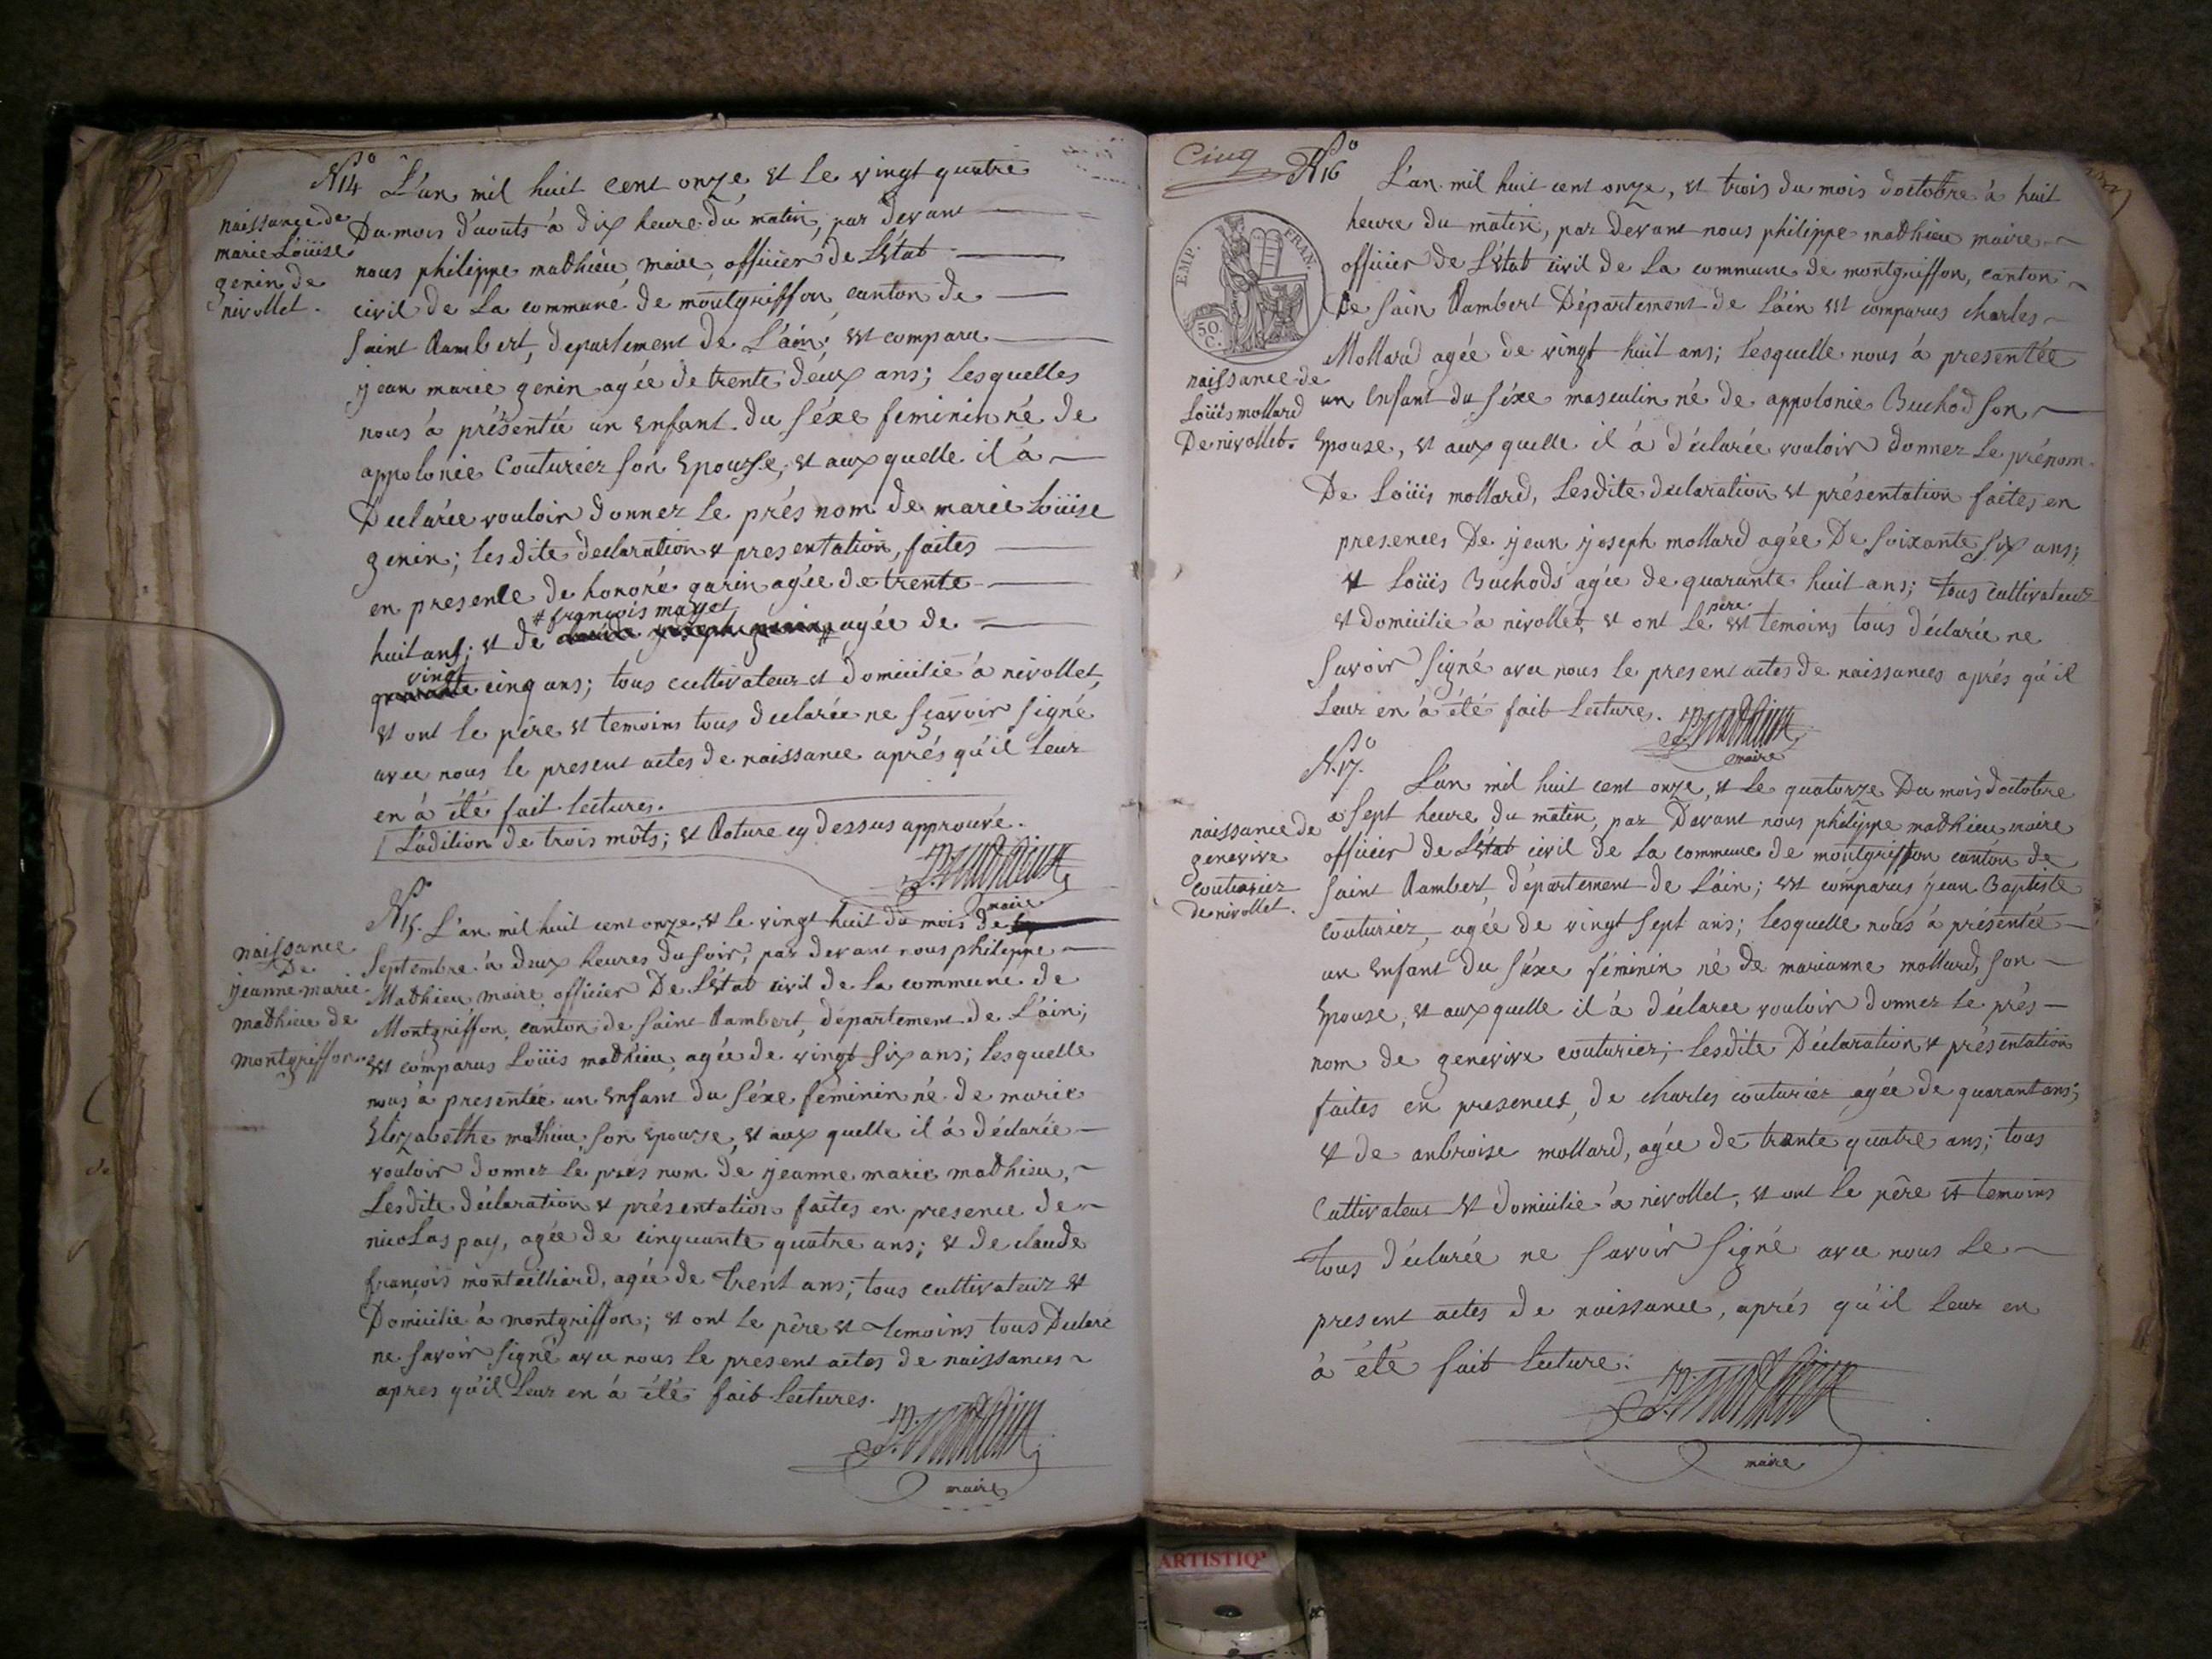 N° 14 L'an mil huit cent onze, et le vingt quatre
naissance de
marie Loüise
genin de
nivollet.
Du mois d'aouts à dix heure du matin, par devant
nous philippe mathieu maire, officier de L'état
civil de La commune de montgriffon canton de
saint Rambert, departement de L'ain; est comparu
jean marie genin agée de trente deux ans; Lesquelles
nous à présentée un enfant du séxe feminin né de
appolonie Couturier son Epouse, et aux quelle il à
Déclarée vouloir donner Le prés nom de marie Loüise
genin; lesdite declaration & presentation, faites
en presence de honoré garin agée de trente
# françois mayet
huit ans; et de agée de
vingt
quarante cinq ans; tous cultivateur et domicilié à nivollet,
et ont le pére et temoins tous declarée ne sçavoir signé
avec nous le present actes de naissance aprés qu'il leur
en à été fait lectures.
L'adition de trois môts; et Rature cy dessus approuvé.
P. Mathieu
maire
N° 15. L'an mil huit cent onze, et le vingt huit du mois de
naissance
De
jeanne marie
mathieu de
montgriffon.
Septembre à deux heures du soir, par devant nous philippe
Mathieu maire officier De L'état civil de La commune de
Montgriffon, canton de saint Rambert, département de L'ain;
est comparus Loüis mathieu, agée de vingt six ans; lesquelle
nous à presentée un enfant du séxe féminin né de marie
Elizabethe mathieu son epouse, et aux quelle il à déclarée
vouloir donner Le prés nom de jeanne marie mathieu,
Lesdite déclaration & présentation faites en presence de
nicolas pay, agée de cinquante quatre ans; & de claude
françois montcilliard, agée de trent ans; tous cultivateur et
Domicilie à montgriffon; et ont Le pére et temoins tous Declaré
ne savoir signé avec nous le present actes de naissances
apres qu'il Leur en à été fait Lectures.
P. Mathieu
maire
Cinq
N° 16 L'an mil huit cent onze, et trois du mois d'octobre à huit
EMP. FRAN.
50. C.
naissance de
Loüis mollard
De nivollet.
heure du matin, par devant nous philippe mathieu maire
officier de L'état civil de La commune de montgriffon, canton
De sain Rambert Département de L'ain est comparus charles
Mollard agée de vingt huit ans; Lesquelle nous à presentée
un Enfant du séxe masculin né de appolonie Buchod son
Epouse, et aux quelle il à déclarée vouloir donner Le prénom
De Loüis mollard, Lesdite declaration et présentation faites en
presences De jean joseph mollard agée De soixante six ans;
et Loüis Buchods agée de quarante huit ans; tous cultivateur
père
et domicilié à nivollet, et ont le et temoins tous déclarée ne
savoir signé avec nous le present actes de naissances aprés qu'il
Leur en à été fait Lectures.
P. Mathieu
maire
N° 17. L'an mil huit cent onze, et Le quatorze Du mois d'octobre
naissance de
genevive
couturier
de nivollet.
à sept heure du matin, par Devant nous philippe mathieu maire
officier de L'état civil de La commune de montgriffon canton de
saint Rambert, département de L'ain; est comparus jean Baptiste
couturier, agée de vingt sept ans; lesquelle nous à présentée
un enfant du séxe féminin né de marianne mollard, son
Epouse, et aux quelle il à déclaree vouloir donner Le prés
nom de genevive couturier; lesdite Déclaration & présentation
faites en presences, de charles couturier agée de quarant ans;
et de anbroise mollard, agée de trente quatre ans; tous
Cultivateur et domicilié à nivollet, et ont Le pére et temoins
tous déclarée ne savoir signé avec nous Le
present actes de naissance, aprés qu'il Leur en
à été fait lecture.
P. Mathieu
maire
ARTISTIQ